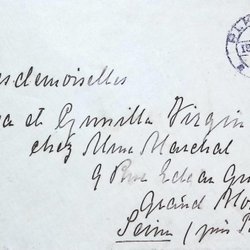 esdemoiselles
a et Gunilla Virgin
chez Mme Marechal
9 Rue Edgar
Grand Mo
Seine (près